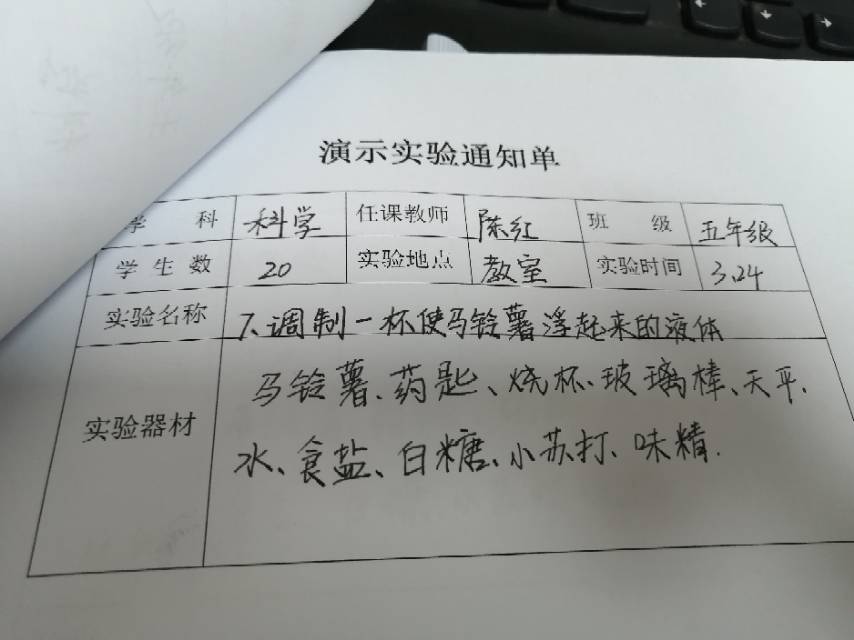 演示实验通知单
学 科 科学 任课教师 陈红 班 级 五年级
学生数 20 实验地点 教室 实验时间 3.24
实验名称 7、调制一杯使马铃薯浮起来的液体
实验器材 马铃薯、药匙、烧杯、玻璃棒、天平、
水、食盐、白糖、小苏打、味精.